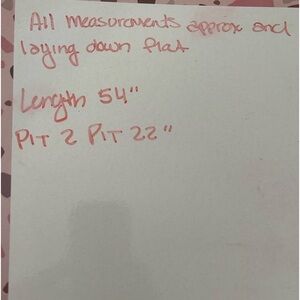 All measurements approx and
laying down flat
Length 54"
PIT 2 PIT 22"